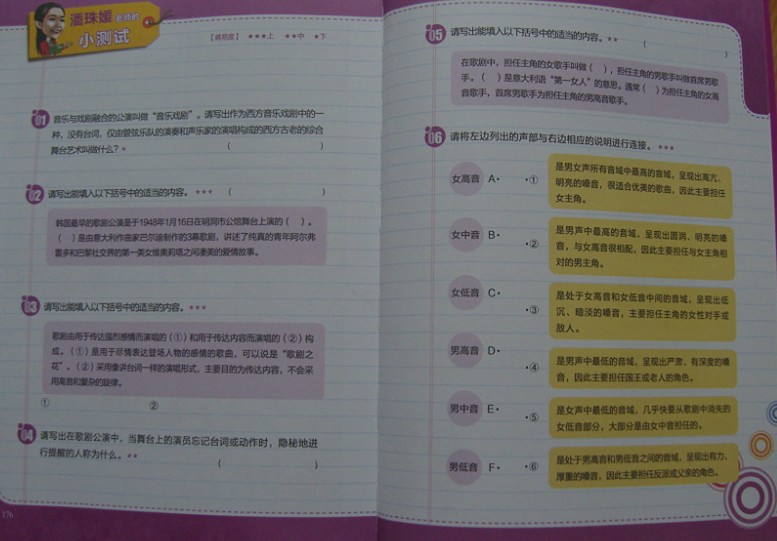 潘珠媛老师的
小测试
【难易度】 ★★★上 ★★中 ★下
01 音乐与戏剧融合的公演叫做“音乐戏剧”。请写出作为西方音乐戏剧中的一
种，没有台词，仅由管弦乐队的演奏和声乐家的演唱构成的西方古老的综合
舞台艺术叫做什么？★ （ ）
02 请写出能填入以下括号中的适当的内容。★★★ （ ）
韩国最早的歌剧公演是于1948年1月16日在明洞市公馆舞台上演的（ ）。
（ ）是由意大利作曲家巴尔迪制作的3幕歌剧，讲述了纯真的青年阿尔弗
雷多和巴黎社交界的第一美女维奥莉塔之间凄美的爱情故事。
03 请写出能填入以下括号中的适当的内容。★★★
歌剧由用于传达强烈感情而演唱的（①）和用于传达内容而演唱的（②）构
成。（①）是用于尽情表达登场人物的感情的歌曲，可以说是“歌剧之
花”。（②）采用像讲台词一样的演唱形式，主要目的为传达内容，不会采
用高音和复杂的旋律。
① ②
04 请写出在歌剧公演中，当舞台上的演员忘记台词或动作时，隐秘地进
行提醒的人称为什么。★★
（ ）
176
05 请写出能填入以下括号中的适当的内容。★★
（ ）
在歌剧中，担任主角的女歌手叫做（ ），担任主角的男歌手叫做首席男歌
手。（ ）是意大利语“第一女人”的意思。通常（ ）为担任主角的女高
音歌手，首席男歌手为担任主角的男高音歌手。
06 请将左边列出的声部与右边相应的说明进行连接。★★★
女高音 A· ·①
是男女声所有音域中最高的音域，呈现出高亢、
明亮的嗓音，很适合优美的歌曲，因此主要担任
女主角。
女中音 B· ·②
是男声中最高的音域，呈现出圆润、明亮的嗓
音，与女高音很相配，因此主要担任与女主角相
对的男主角。
女低音 C· ·③
是处于女高音和女低音中间的音域，呈现出低
沉、暗淡的嗓音，主要担任主角的女性对手或
敌人。
男高音 D· ·④
是男声中最低的音域，呈现出严肃、有深度的嗓
音，因此主要担任国王或老人的角色。
男中音 E· ·⑤
是女声中最低的音域，几乎快要从歌剧中消失的
女低音部分，大部分是由女中音担任的。
男低音 F· ·⑥
是处于男高音和男低音之间的音域，呈现出有力、
厚重的嗓音，因此主要担任反派或父亲的角色。